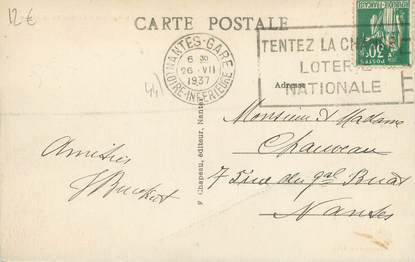 12 €
CARTE POSTALE
NANTES-GARE
6 30
26 - VII
1937
LOIRE-INFERIEURE
TENTEZ LA CHANCE
LOTERIE
NATIONALE
POSTES
30c
44
Adresse
Monsieur et Madame
Chauveau
7 rue du gal Buat
Nantes
Amitiés
F. Chapeau, éditeur, Nantes